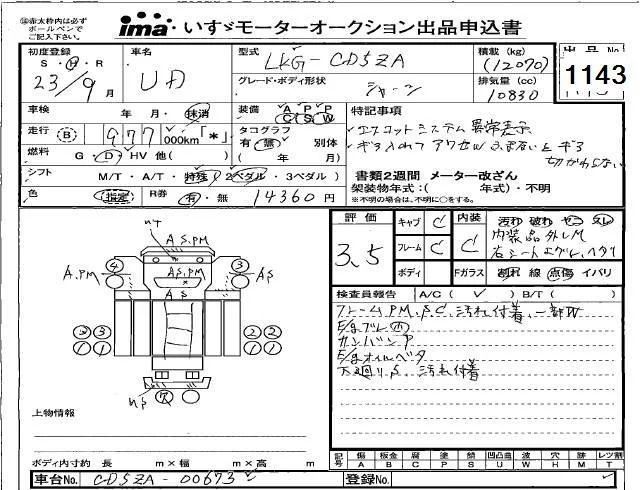 ㊟赤太枠内は必ず
ボールペンで
ご記入下さい。
ima いすゞモーターオークション出品申込書
初度登録
S・H・R
23/9月
車名
UD
型式
LKG-CD5ZA
積載 (kg)
(12070)
グレード・ボディ形状
排気量 (cc)
10830
出品 No
1143
車検
年 月・抹消
装備
A P P
C S W
特記事項
走行
(B) 977 000km「*」
タコグラフ
有・無 別体
( 年 月)
エスコットシステム 異常表示
ギヤ入れて アクセル ふまないと ギヤ
切かわらない
燃料
G・D・HV 他( )
シフト
M/T・A/T・特殊(2ペダル・3ペダル)
書類2週間 メーター改ざん
架装物年式:( 年式)・不明
※不明の場合は、不明に○をする。
色
R券
有・無 14360円
評価
3.5
キャブ C
フレーム C
ボディ
内装 C
Fガラス
汚れ 破れ
内装品外しM
割れ 線 点傷 イバリ
検査員報告 A/C( ✓ ) B/T( )
フレームPM,SC,汚れ付着,一部W
カンバンP
下廻りS,汚れ付着
A S,PM
A S
A,PM
A S
④ ③
②③ ②②
①① ①①
上物情報
ボディ内寸約 長 m×幅 m×高 m
記号
傷 板金 腐 塗 錆 凹凸曲 波 穴 跡 レツ割
A B C P S U W H M T
車台No. CD5ZA-00673
登録No.